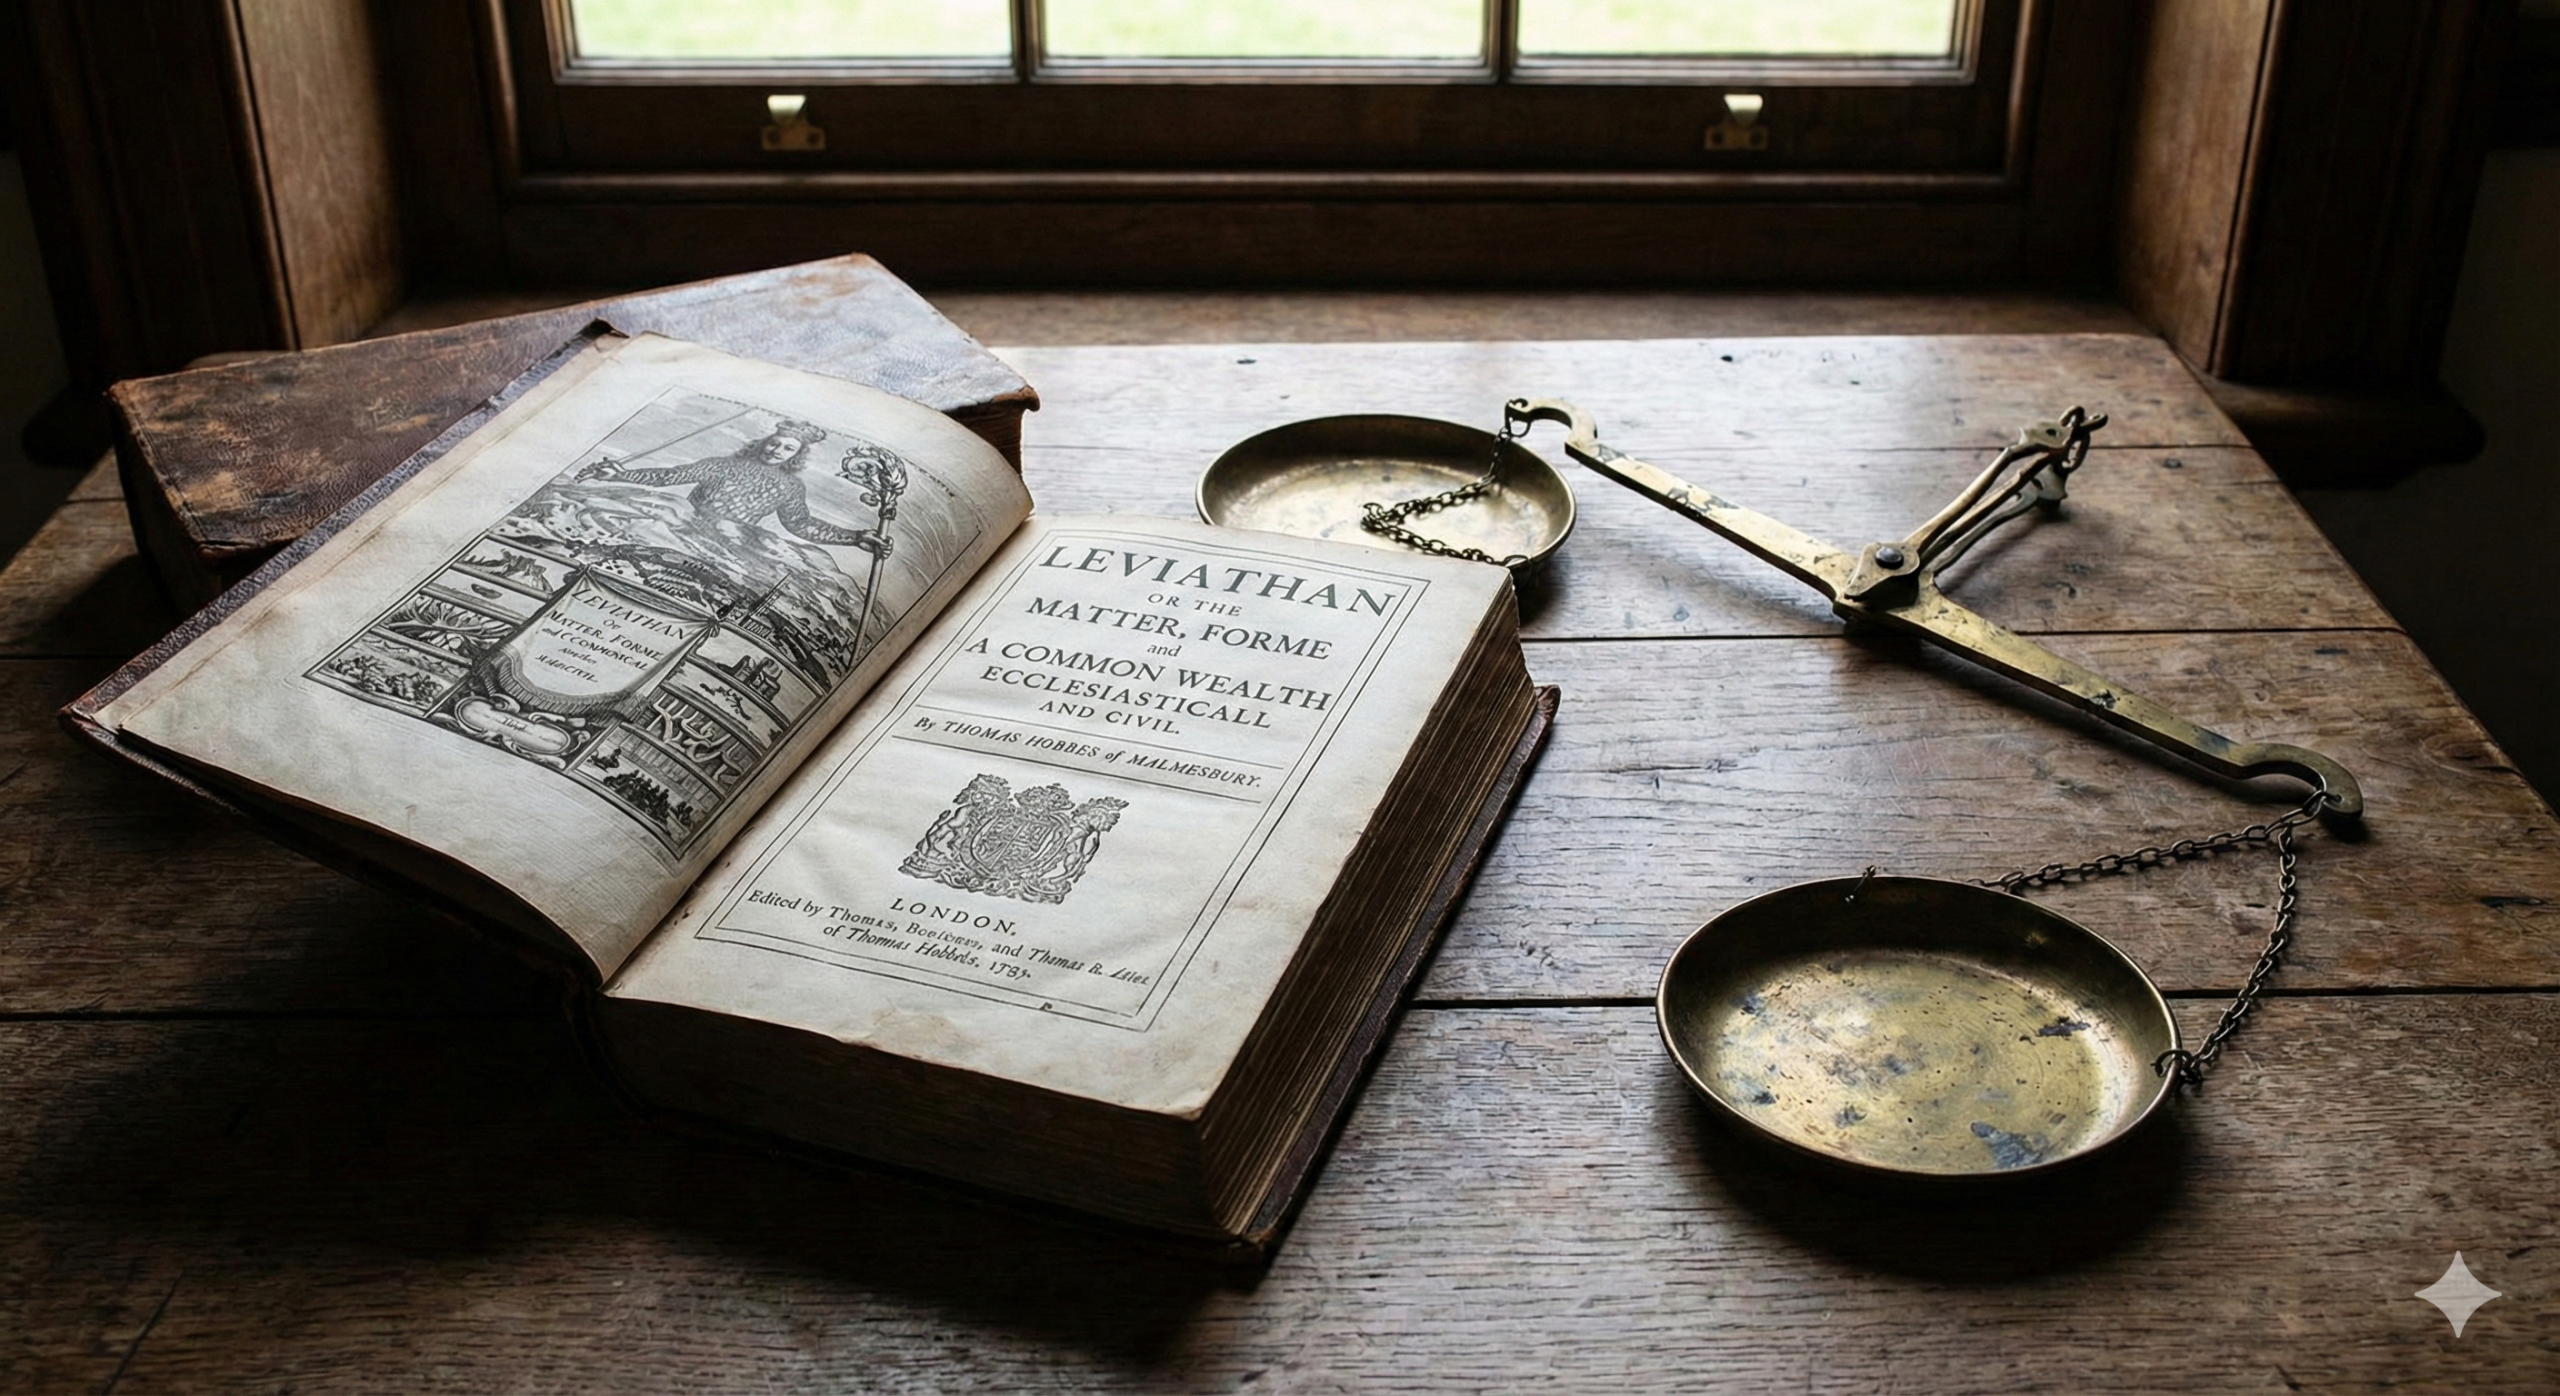 LEVIATHAN
Or
MATTER, FORME
and
MDCCIVIL.
LEVIATHAN
OR THE
MATTER, FORME
and
A COMMON WEALTH
ECCLESIASTICALL
AND CIVIL.
By THOMAS HOBBES of MALMESBURY.
LONDON,
Edited by Thomas, and Thomas R.
of Thommas Hobbds. 1789.